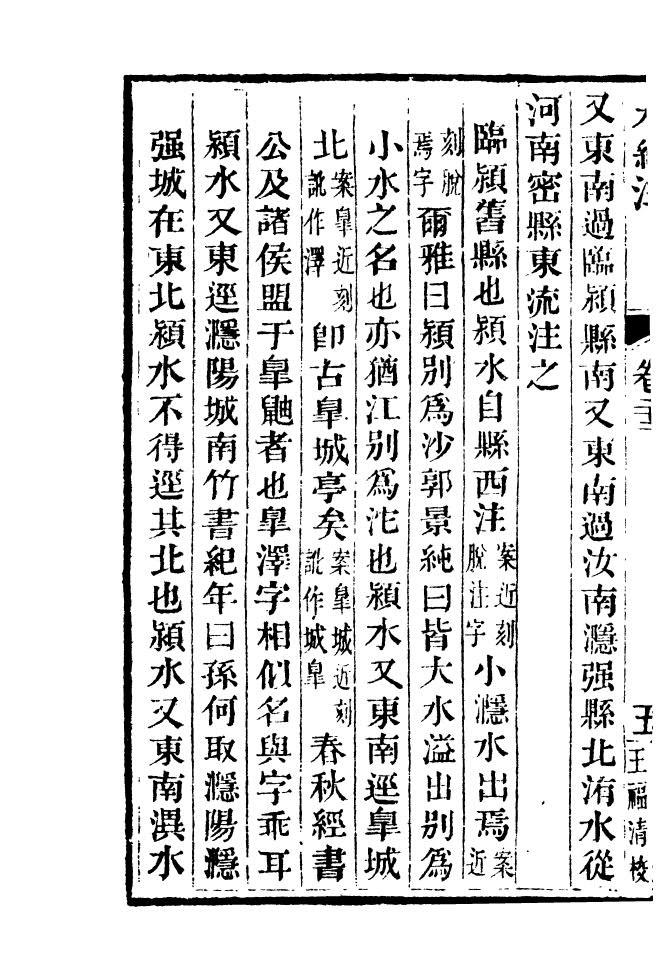 水經注 卷二十二 五 王福清校
又東南過臨潁縣南又東南過汝南㶏强縣北洧水從
河南密縣東流注之
臨潁舊縣也潁水自縣西注案近刻脫注字小㶏水出焉案近
刻脫焉字爾雅曰潁别爲沙郭景純曰皆大水溢出别爲
小水之名也亦猶江别爲沱也潁水又東南逕臯城
北案臯近刻訛作澤卽古臯城亭矣案臯城近刻訛作城臯春秋經書
公及諸侯盟于臯鼬者也臯澤字相似名與字乖耳
潁水又東逕㶏陽城南竹書紀年曰孫何取㶏陽㶏
强城在東北潁水不得逕其北也潁水又東南潩水